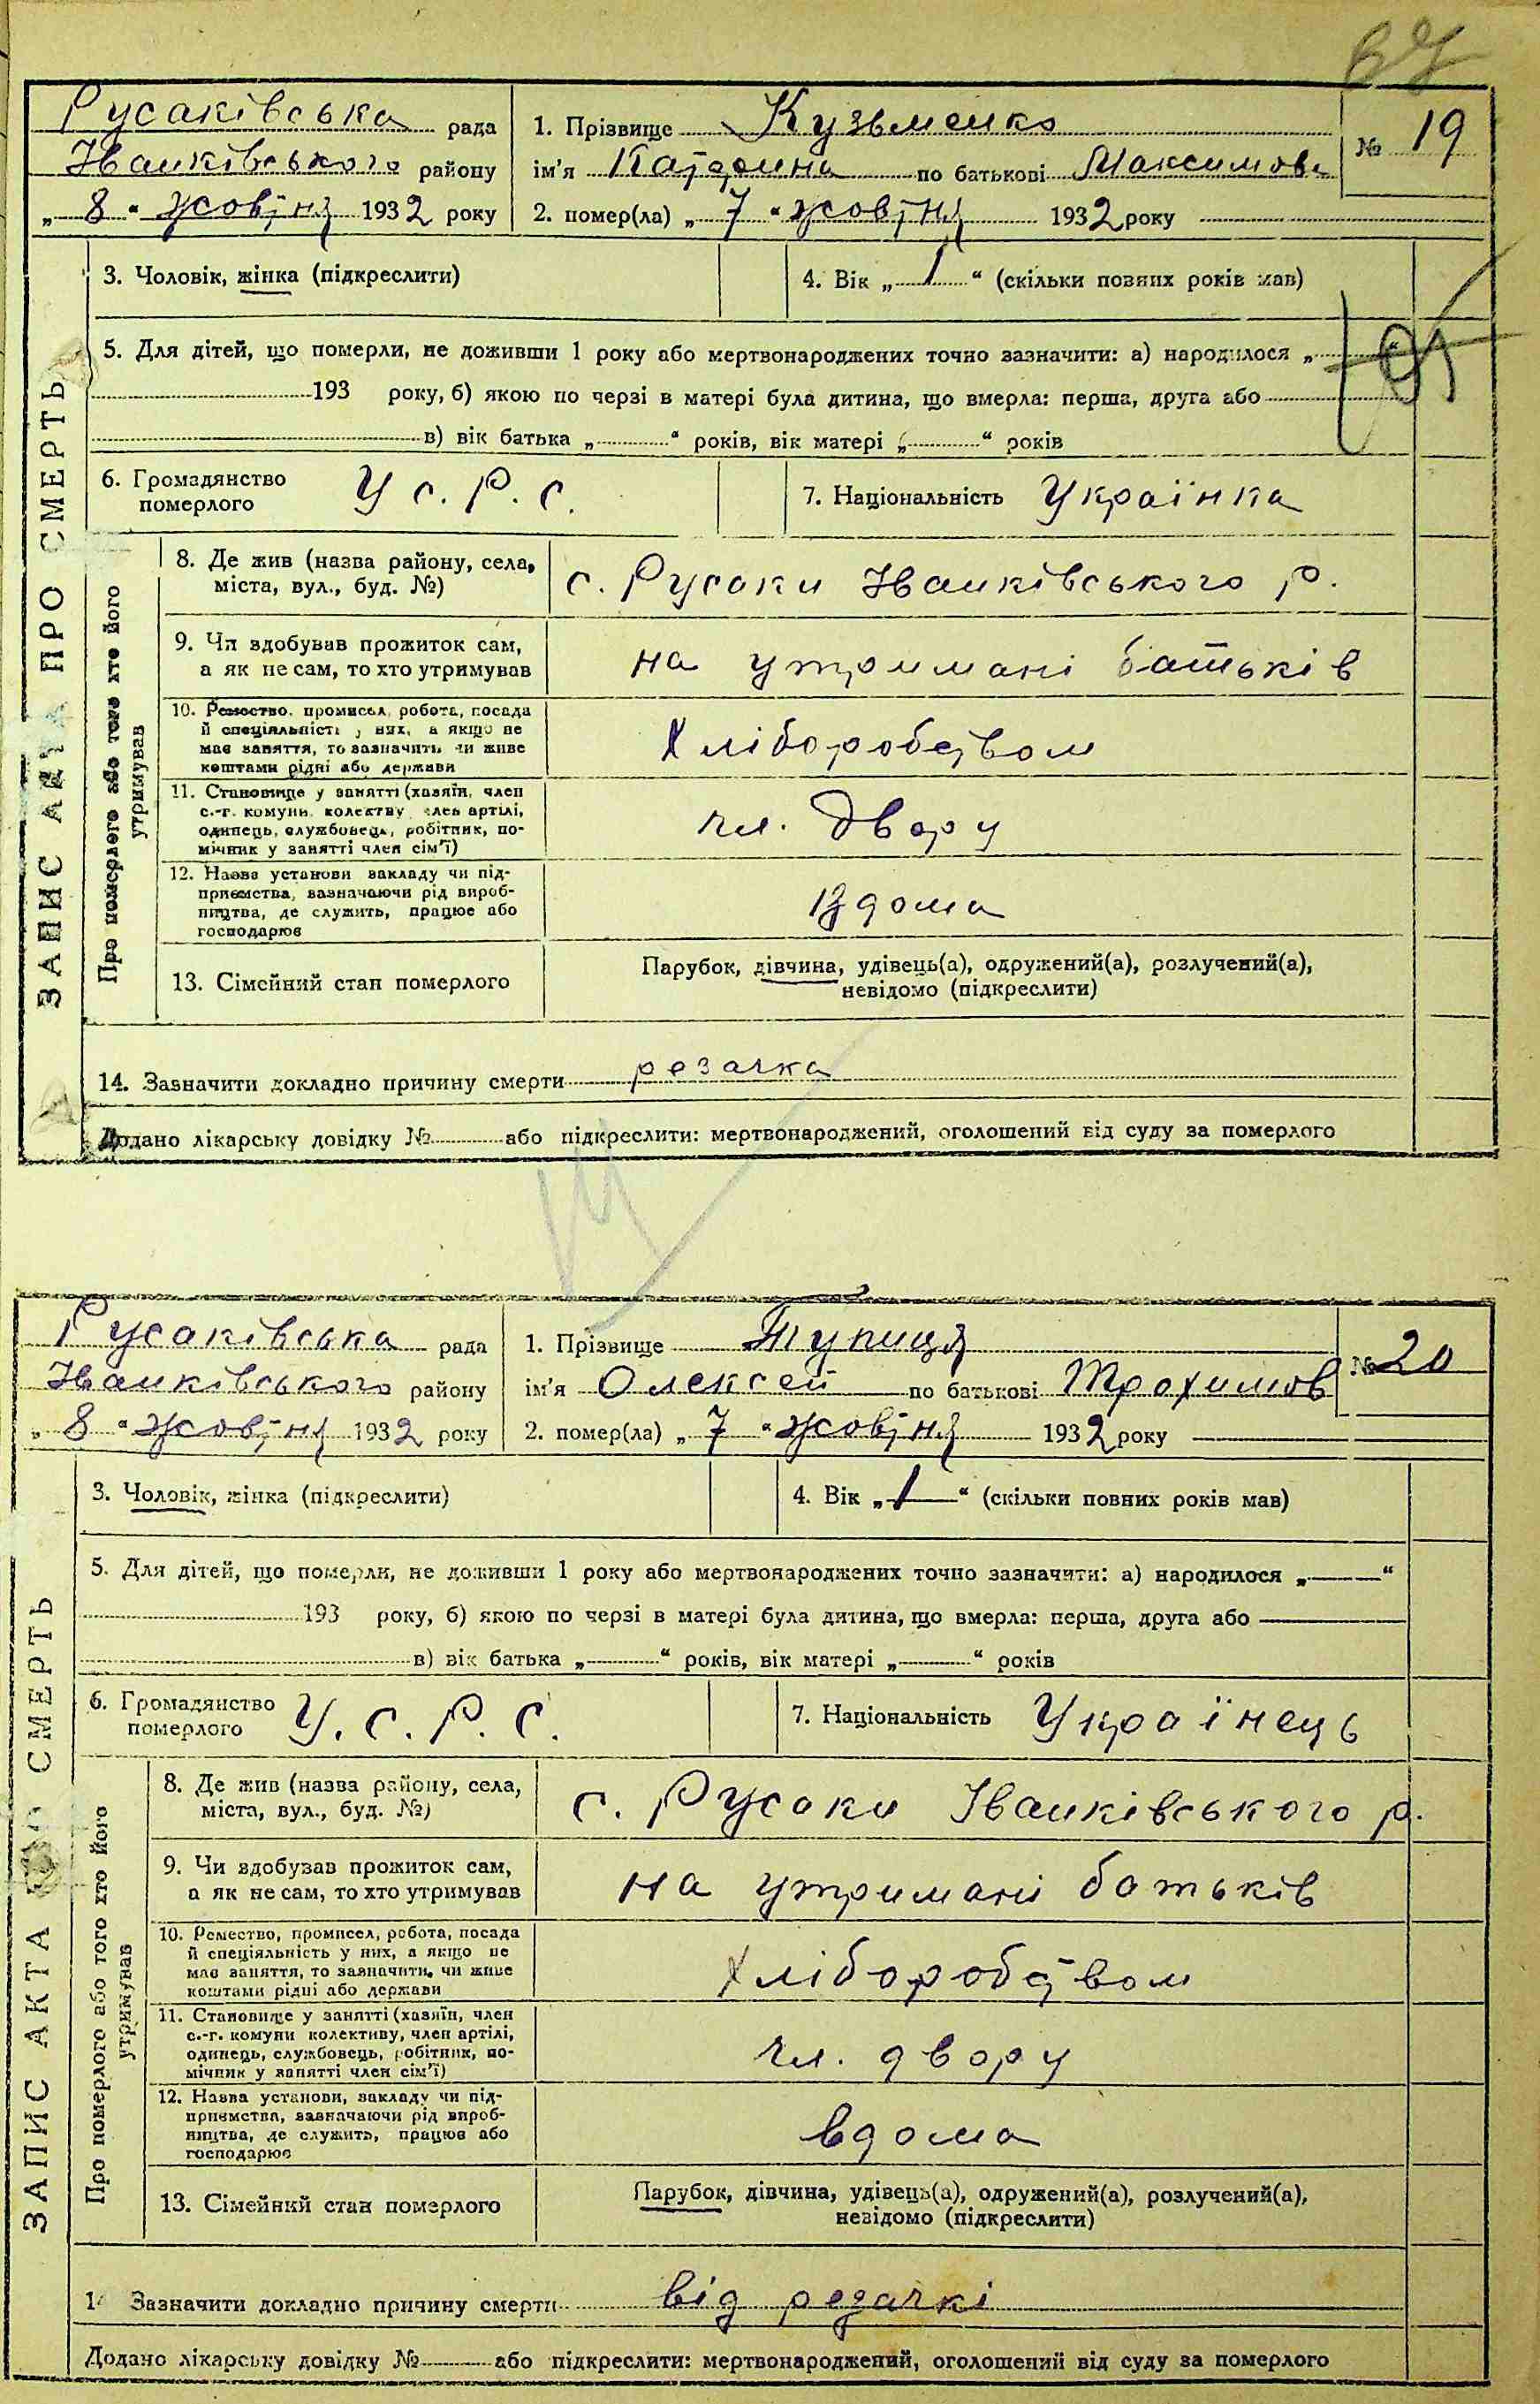 67
Русаківська рада
Іванківського району
„ 8 " жовтня 1932 року
1. Прізвище Кузьменко
ім'я Катерина по батькові Максимовн
2. помер(ла) „ 7 " жовтня 1932 року
№ 19
ЗАПИС АКТА ПРО СМЕРТЬ
3. Чоловік, жінка (підкреслити)
4. Вік „ 1 " (скільки повних років мав)
5. Для дітей, що померли, не доживши 1 року або мертвонароджених точно зазначити: а) народилося „
193 року, б) якою по черзі в матері була дитина, що вмерла: перша, друга або
в) вік батька „ " років, вік матері „ " років
6. Громадянство
померлого
У с. Р. с.
7. Національність Українка
Про померлого або того хто його
утримував
8. Де жив (назва району, села,
міста, вул., буд. №)
с. Русаки Іванківського р.
9. Чи здобував прожиток сам,
а як не сам, то хто утримував
на утримані батьків
10. Ремество, промисел, робота, посада
й спеціяльність у них, а якщо не
має заняття, то зазначить чи живе
коштами рідні або держави
Хліборобством
11. Становище у занятті (хазяїн, член
с.-г. комуни, колективу, член артілі,
одинець, службовець, робітник, по-
мічник у занятті член сім'ї)
чл. двору
12. Назва установи закладу чи під-
приємства, зазначаючи рід вироб-
ництва, де служить, працює або
господарює
вдома
13. Сімейний стан померлого
Парубок, дівчина, удівець(а), одружений(а), розлучений(а),
невідомо (підкреслити)
14. Зазначити докладно причину смерти резачка
Додано лікарську довідку № або підкреслити: мертвонароджений, оголошений від суду за померлого
Русаківська рада
Іванківського району
„ 8 " жовтня 1932 року
1. Прізвище Тупиця
ім'я Олексей по батькові Трохимов
2. помер(ла) „ 7 " жовтня 1932 року
№ 20
ЗАПИС АКТА ПРО СМЕРТЬ
3. Чоловік, жінка (підкреслити)
4. Вік „ 1 " (скільки повних років мав)
5. Для дітей, що померли, не доживши 1 року або мертвонароджених точно зазначити: а) народилося „ "
193 року, б) якою по черзі в матері була дитина, що вмерла: перша, друга або
в) вік батька „ " років, вік матері „ " років
6. Громадянство
померлого
У. С. Р. С.
7. Національність Українець
Про померлого або того хто його
утримував
8. Де жив (назва району, села,
міста, вул., буд. №)
с. Русаки Іванківського р.
9. Чи здобував прожиток сам,
а як не сам, то хто утримував
на утримані батьків
10. Ремество, промисел, робота, посада
й спеціяльність у них, а якщо не
має заняття, то зазначити, чи живе
коштами рідні або держави
Хліборобством
11. Становище у занятті (хазяїн, член
с.-г. комуни колективу, член артілі,
одинець, службовець, робітник, по-
мічник у занятті член сім'ї)
чл. двору
12. Назва установи, закладу чи під-
приємства, зазначаючи рід вироб-
ництва, де служить, працює або
господарює
вдома
13. Сімейний стан померлого
Парубок, дівчина, удівець(а), одружений(а), розлучений(а),
невідомо (підкреслити)
14 Зазначити докладно причину смерти від резачкі
Додано лікарську довідку № або підкреслити: мертвонароджений, оголошений від суду за померлого